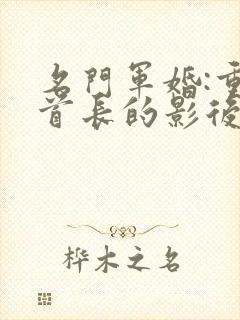 名門軍婚:重
首長的影後
桦木之名